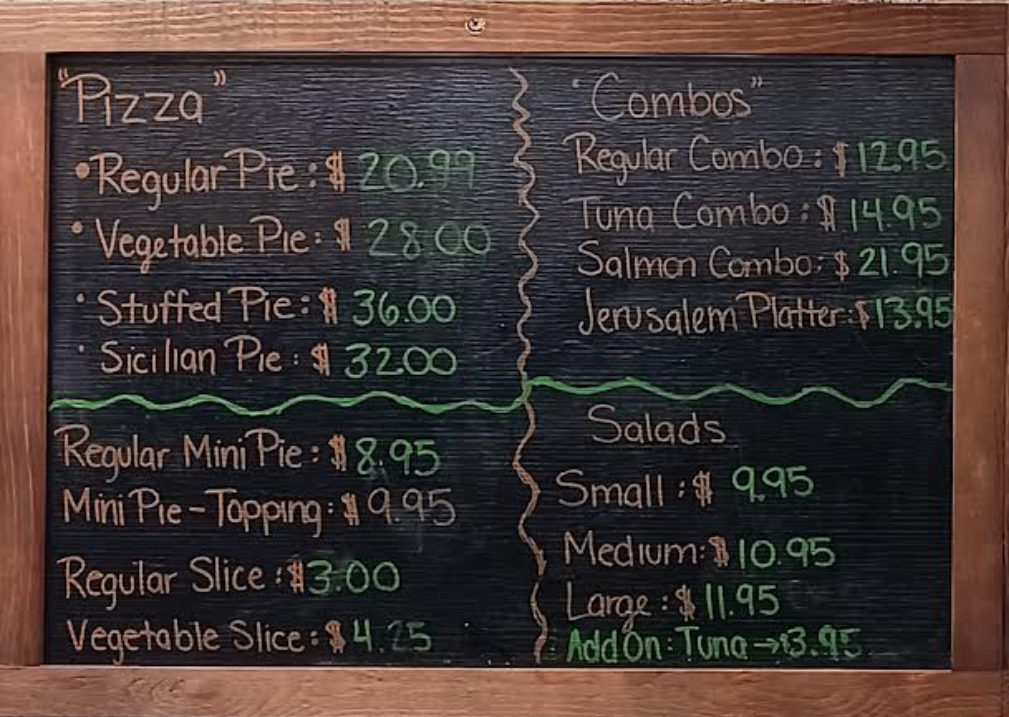 "Pizza"
• Regular Pie: $ 20.99
• Vegetable Pie: $ 28.00
• Stuffed Pie: $ 36.00
• Sicilian Pie: $ 32.00
Regular Mini Pie: $ 8.95
Mini Pie - Topping: $ 9.95
Regular Slice: $3.00
Vegetable Slice: $ 4.25
"Combos"
Regular Combo: $ 12.95
Tuna Combo: $ 14.95
Salmon Combo: $ 21.95
Jerusalem Platter: $13.95
Salads
Small: $ 9.95
Medium: $ 10.95
Large: $ 11.95
Add On: Tuna → $3.95